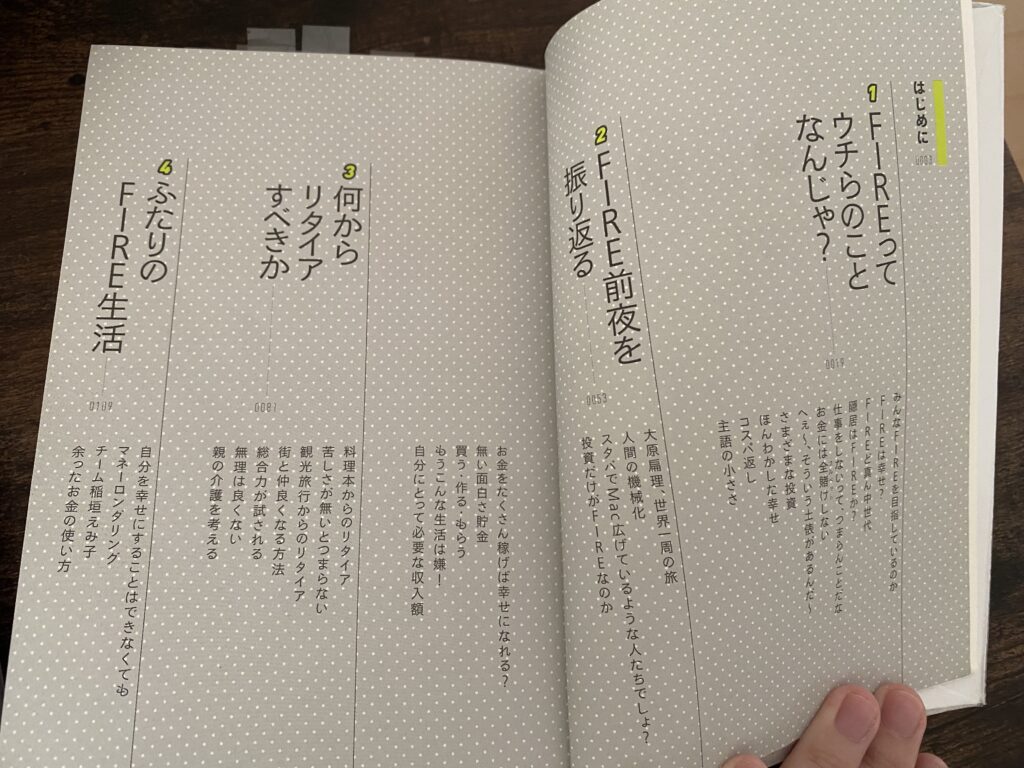 はじめに
0003
1
FIREって
ウチらのこと
なんじゃ?
0019
みんなFIREを目指しているのか
FIREは幸せ?
FIREど真ん中世代
隠居はFIREか?
仕事をしないって、つまらんことだな
お金には全賭けしない
へぇ〜、そういう土俵があるんだ〜
さまざまな投資
ほんわかした幸せ
コスパ返し
主語の小ささ
2
FIRE前夜を
振り返る
0053
大原扁理、世界一周の旅
人間の機械化
スタバでMac広げているような人たちでしょ?
投資だけがFIREなのか
お金をたくさん稼げば幸せになれる?
無い面白さ貯金
買う・作る・もらう
もうこんな生活は嫌!
自分にとって必要な収入額
3
何から
リタイア
すべきか
0081
料理本からのリタイア
苦しさが無いとつまらない
観光旅行からのリタイア
街と仲良くなる方法
総合力が試される
無理は良くない
親の介護を考える
4
ふたりの
FIRE生活
0109
自分を幸せにすることはできなくても
マネーロンダリング
チーム稲垣えみ子
余ったお金の使い方